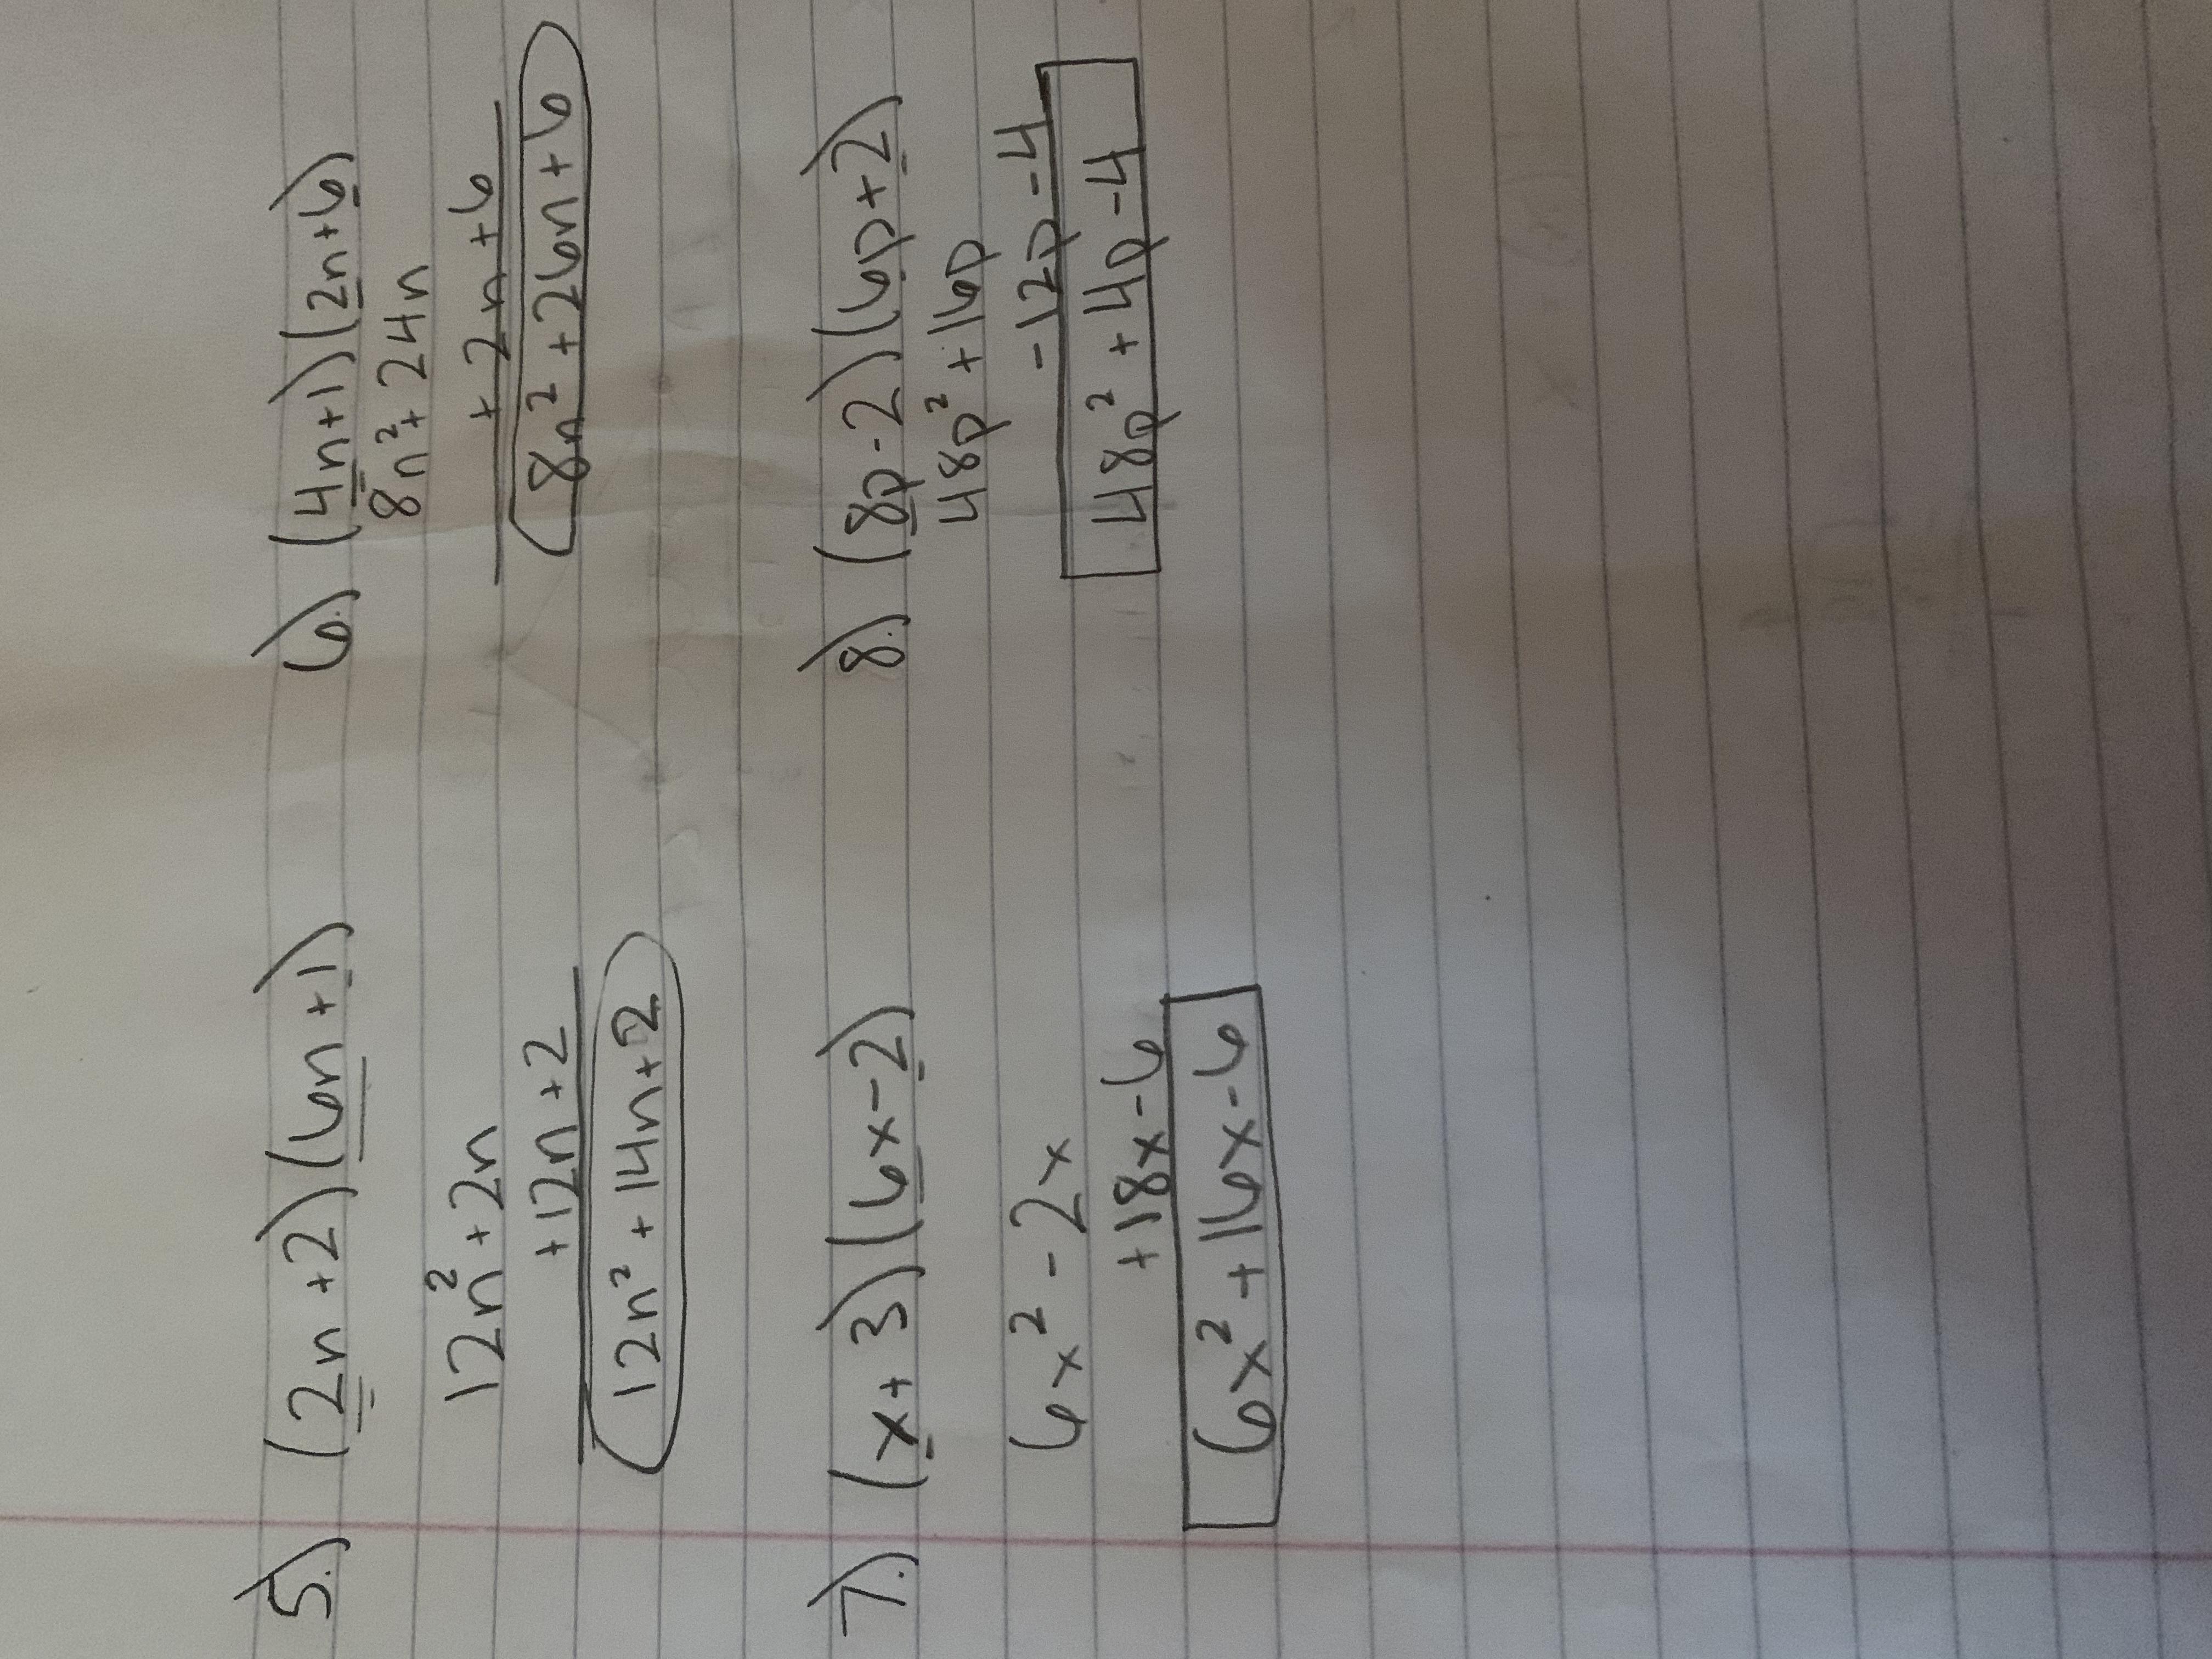 5.) (2n+2)(6n+1)
12n²+2n
+12n+2
12n²+14n+2
6.) (4n+1)(2n+6)
8n²+24n
+2n+6
8n²+26n+6
7.) (x+3)(6x-2)
6x²-2x
+18x-6
6x²+16x-6
8.) (8p-2)(6p+2)
48p²+16p
-12p-4
48p²+4p-4